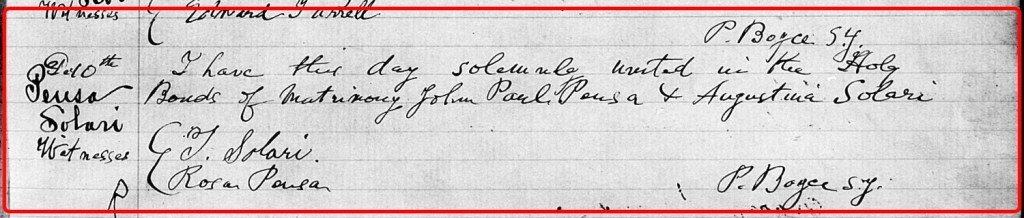 Witnesses { Edward Farrell
P. Boyce S.J.
10th I have this day solemnly united in the Holy
Pensa Bonds of Matrimony John Paul Pensa & Augustina Solari
Solari
Witnesses { T. Solari.
Rosa Pensa
P. Boyce S.J.